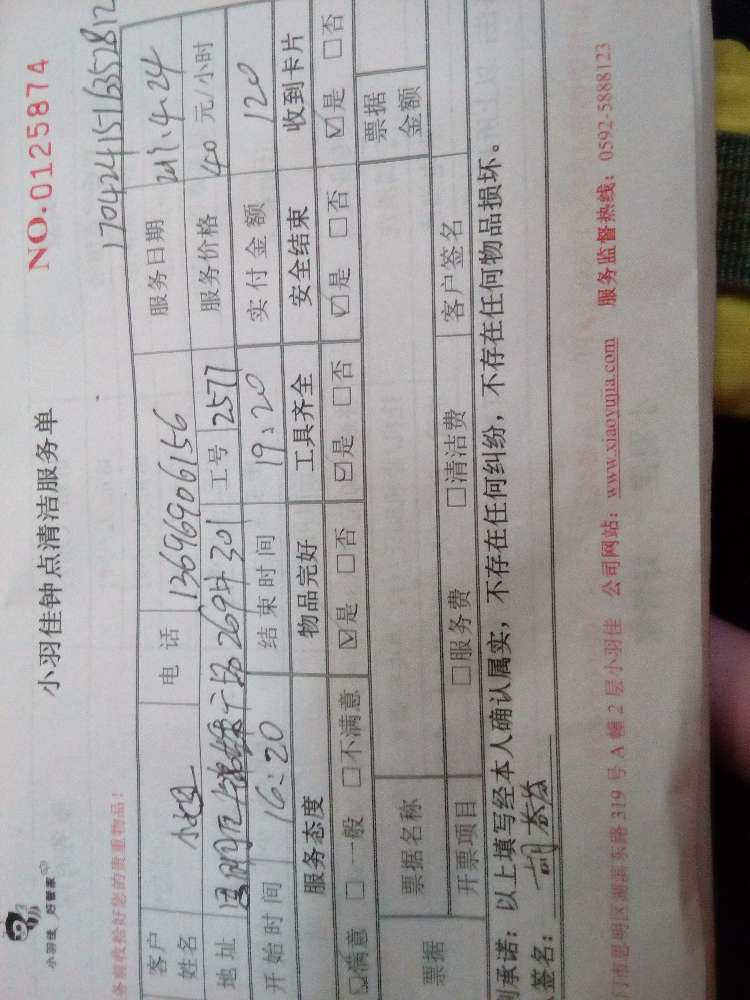 小羽佳 好管家
小羽佳钟点清洁服务单
NO.0125874
务前收捡好您的贵重物品!
1704241516352812
客户姓名 小姐 电话 13696906156 服务日期 2017.4.24
地址 269# 301 工号 2577 服务价格 40 元/小时
开始时间 16:20 结束时间 19:20 实付金额 120
服务态度 物品完好 工具齐全 安全结束 收到卡片
☑满意 □一般 □不满意 ☑是 □否 ☑是 □否 ☑是 □否 ☑是 □否
票据 票据名称 票据金额
开票项目 □服务费 □清洁费 客户签名
承诺:以上填写经本人确认属实,不存在任何纠纷,不存在任何物品损坏。
签名:
门市思明区湖滨东路 319 号 A 幢 2 层小羽佳 公司网站:www.xiaoyujia.com 服务监督热线:0592-5888123